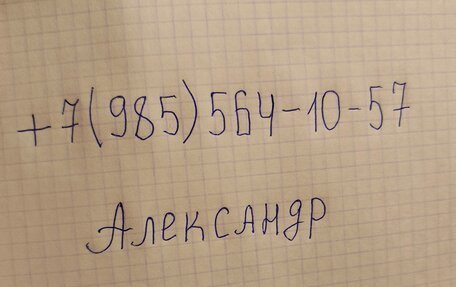 +7(985)564-10-57
Александр